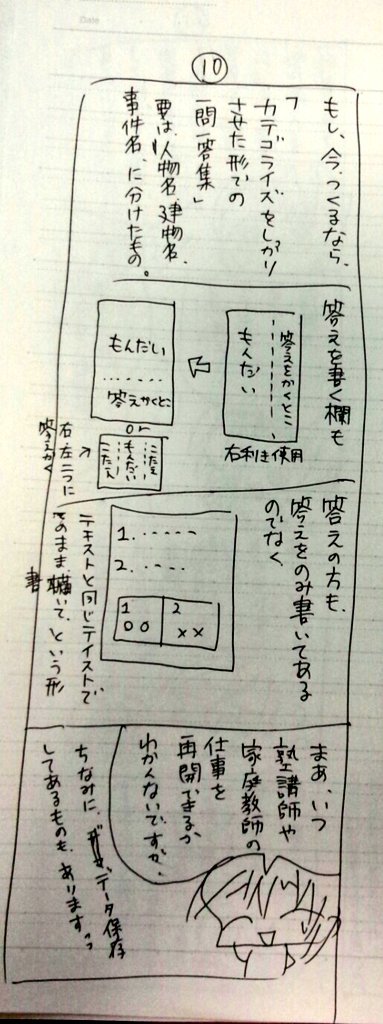 Date
10
もし、今、つくるなら、
「カテゴライズをしっかり
させた形での
一問一答集」
要は、人物名、建物名、
事件名、に分けたもの。
答えを書く欄も
答えをかくとこ
もんだい
右利き使用
もんだい
答えかくとこ
or
こたえ
もんだい
こたえ
右左二つに
答えかく
答えの方も、
答えをのみ書いてある
のでなく、
1.
2.
1
○○
2
××
テキストと同じテイストで
そのまま書いて、という形
まあ、いつ
塾講師や
家庭教師の
仕事を
再開できるか
わかんないですが、
ちなみに、データ保存
してあるものも、あります